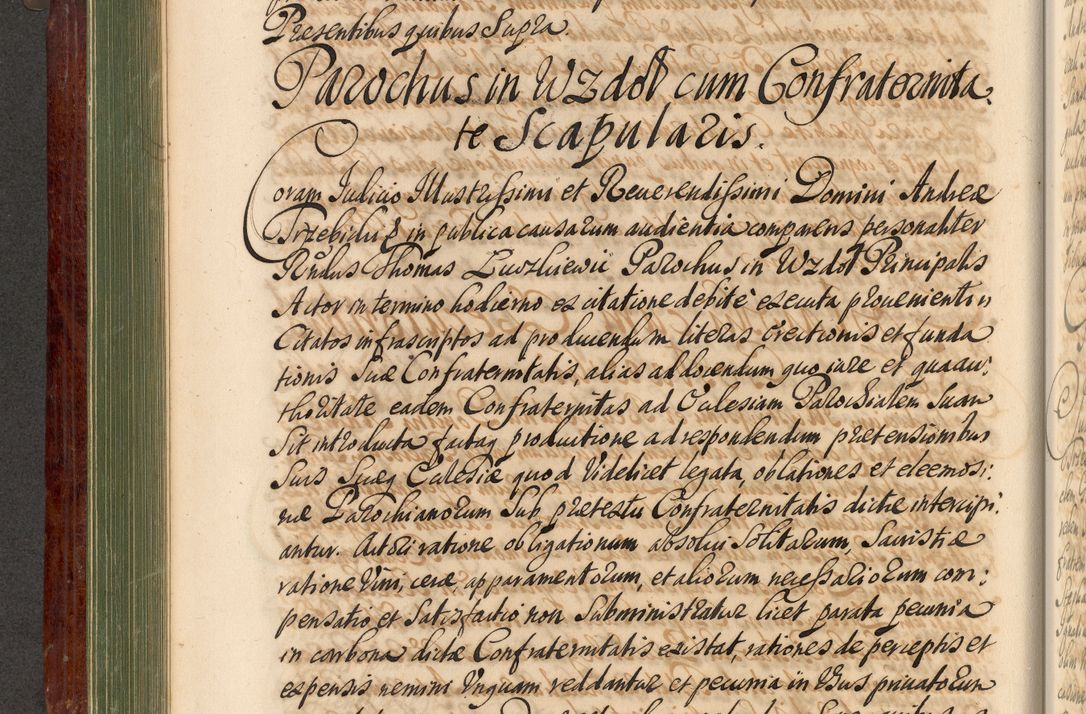 Præsentibus quibus Supra.
Parochus in Wzdoł cum Confraternita
te Scapularis.
Coram Judicio Illustrissimi et Reverendissimi Domini Andreæ
Trzebicki in publica causarum audientia comparens personaliter
Rñdus Thomas Parochus in Wzdoł Principalis
Actor in termino hodierno ex citatione debite executa provenienti
Citatos infrascriptos ad producendum literas Erectionis et funda
tionis Suæ Confraternitatis, alias ad docendum quo iure et qua au:
thoritate eadem Confraternitas ad Ecclesiam Parochialem Suam
Sit introducta factaq productione ad respondendum prætensionibus
Suis Suæq Ecclesiæ quod Videlicet legata, oblationes et eleemos:
næ Parochianorum Sub prætextu Confraternitatis dictæ intercipi:
antur. Actori ratione obligationum absolvi Solitarum, Sacristiæ
ratione Vini, ceræ, apparamentorum, et aliorum necessariorum com:
pensatio et Satisfactio non Subministratur licet parata pecunia
in carbona dictæ Confraternitatis existat, rationes de perceptis et
expensis nemini Unquam reddantur et pecunia in Usus privatorum